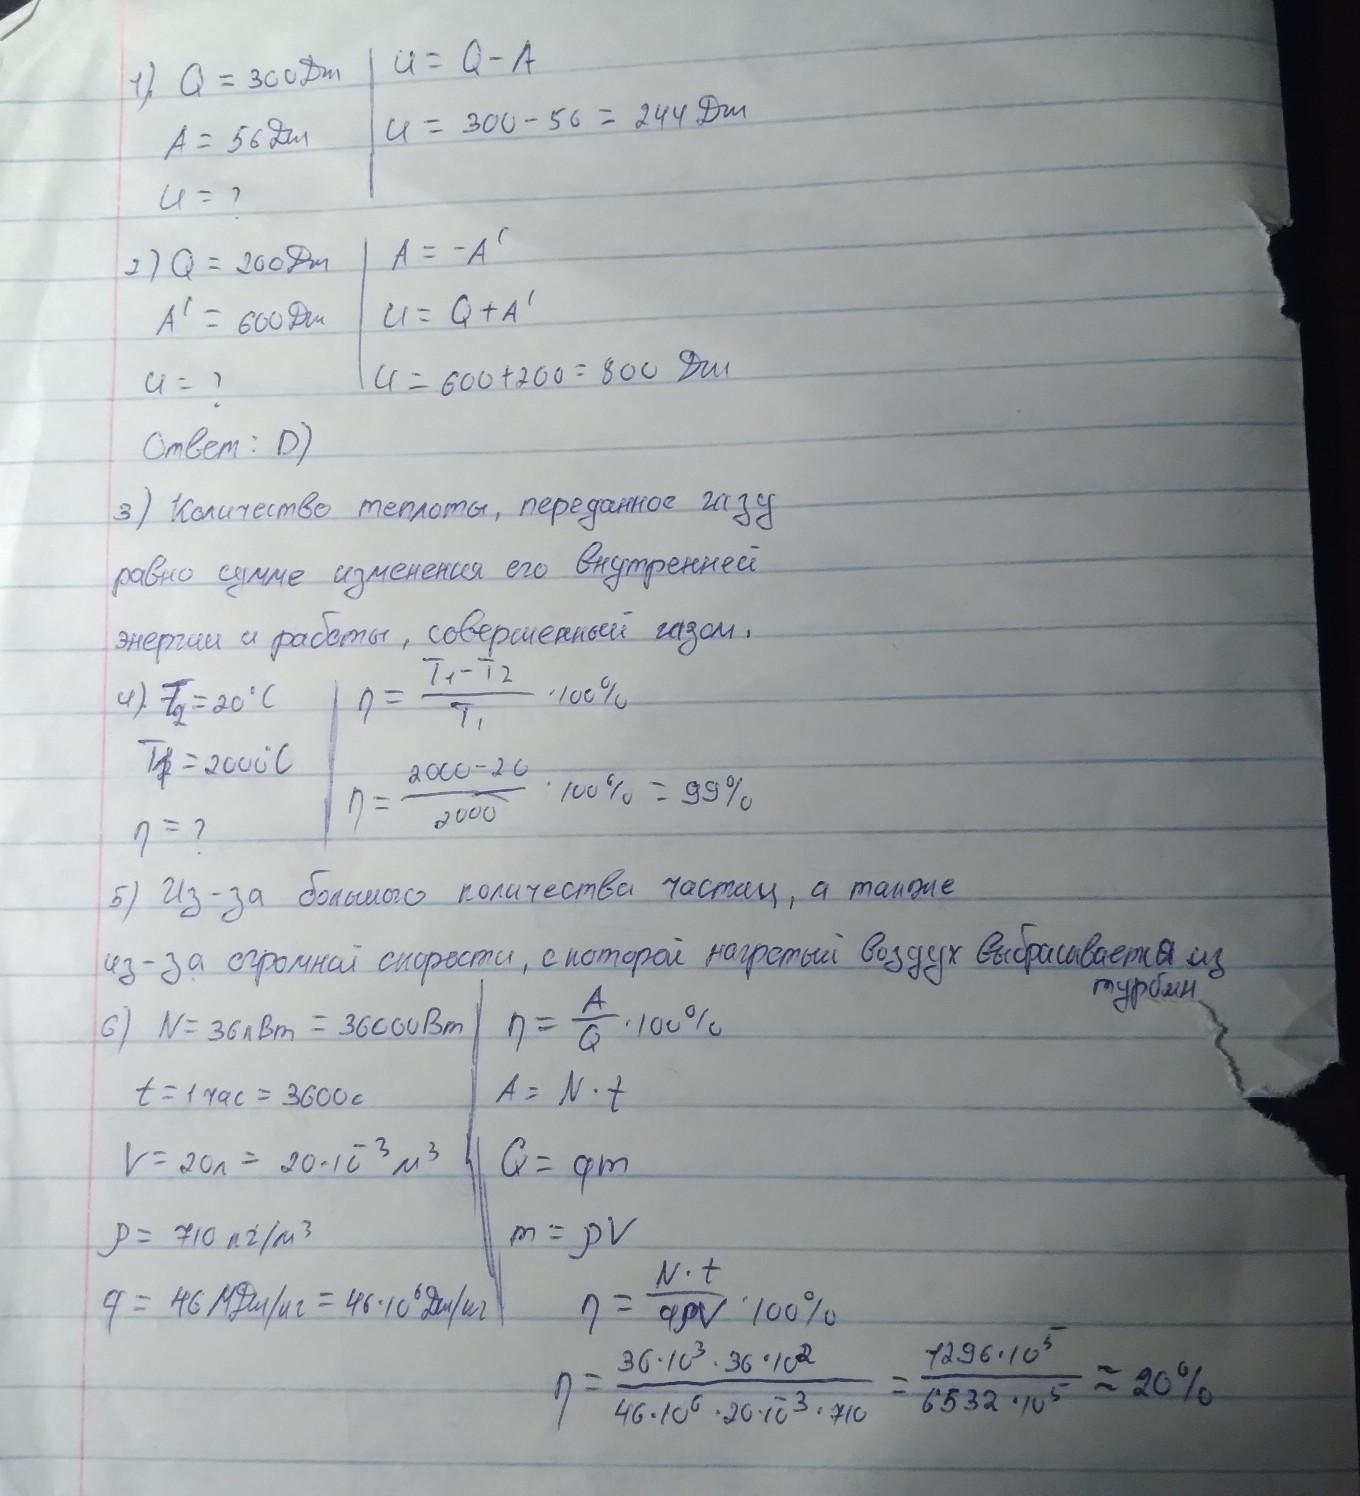 1) Q = 300Дж
A = 56Дж
U = ?
U = Q - A
U = 300 - 56 = 244 Дж
2) Q = 200Дж
A' = 600Дж
U = ?
A = -A'
U = Q + A'
U = 600+200 = 800 Дж
Ответ: D)
3) Количество теплоты, переданное газу
равно сумме изменения его внутренней
энергии и работы, совершенный газом.
4). T₂ = 20°C
T₁ = 2000°C
η = ?
η = (T₁ - T₂)/T₁ · 100%
η = (2000 - 20)/2000 · 100% = 99%
5) Из-за большого количества частиц, а также
из-за огромной скорости, с которой нагретый воздух выбрасывается из
турбин
6) N = 36кВт = 36000Вт
t = 1 час = 3600с
V = 20л = 20·10⁻³ м³
ρ = 710 кг/м³
q = 46 МДж/кг = 46·10⁶Дж/кг
η = A/Q · 100%
A = N · t
Q = qm
m = ρV
η = N·t/qρV · 100%
η = (36·10³·36·10²)/(46·10⁶·20·10⁻³·710) = 1296·10⁵/6532·10⁵ ≈ 20%